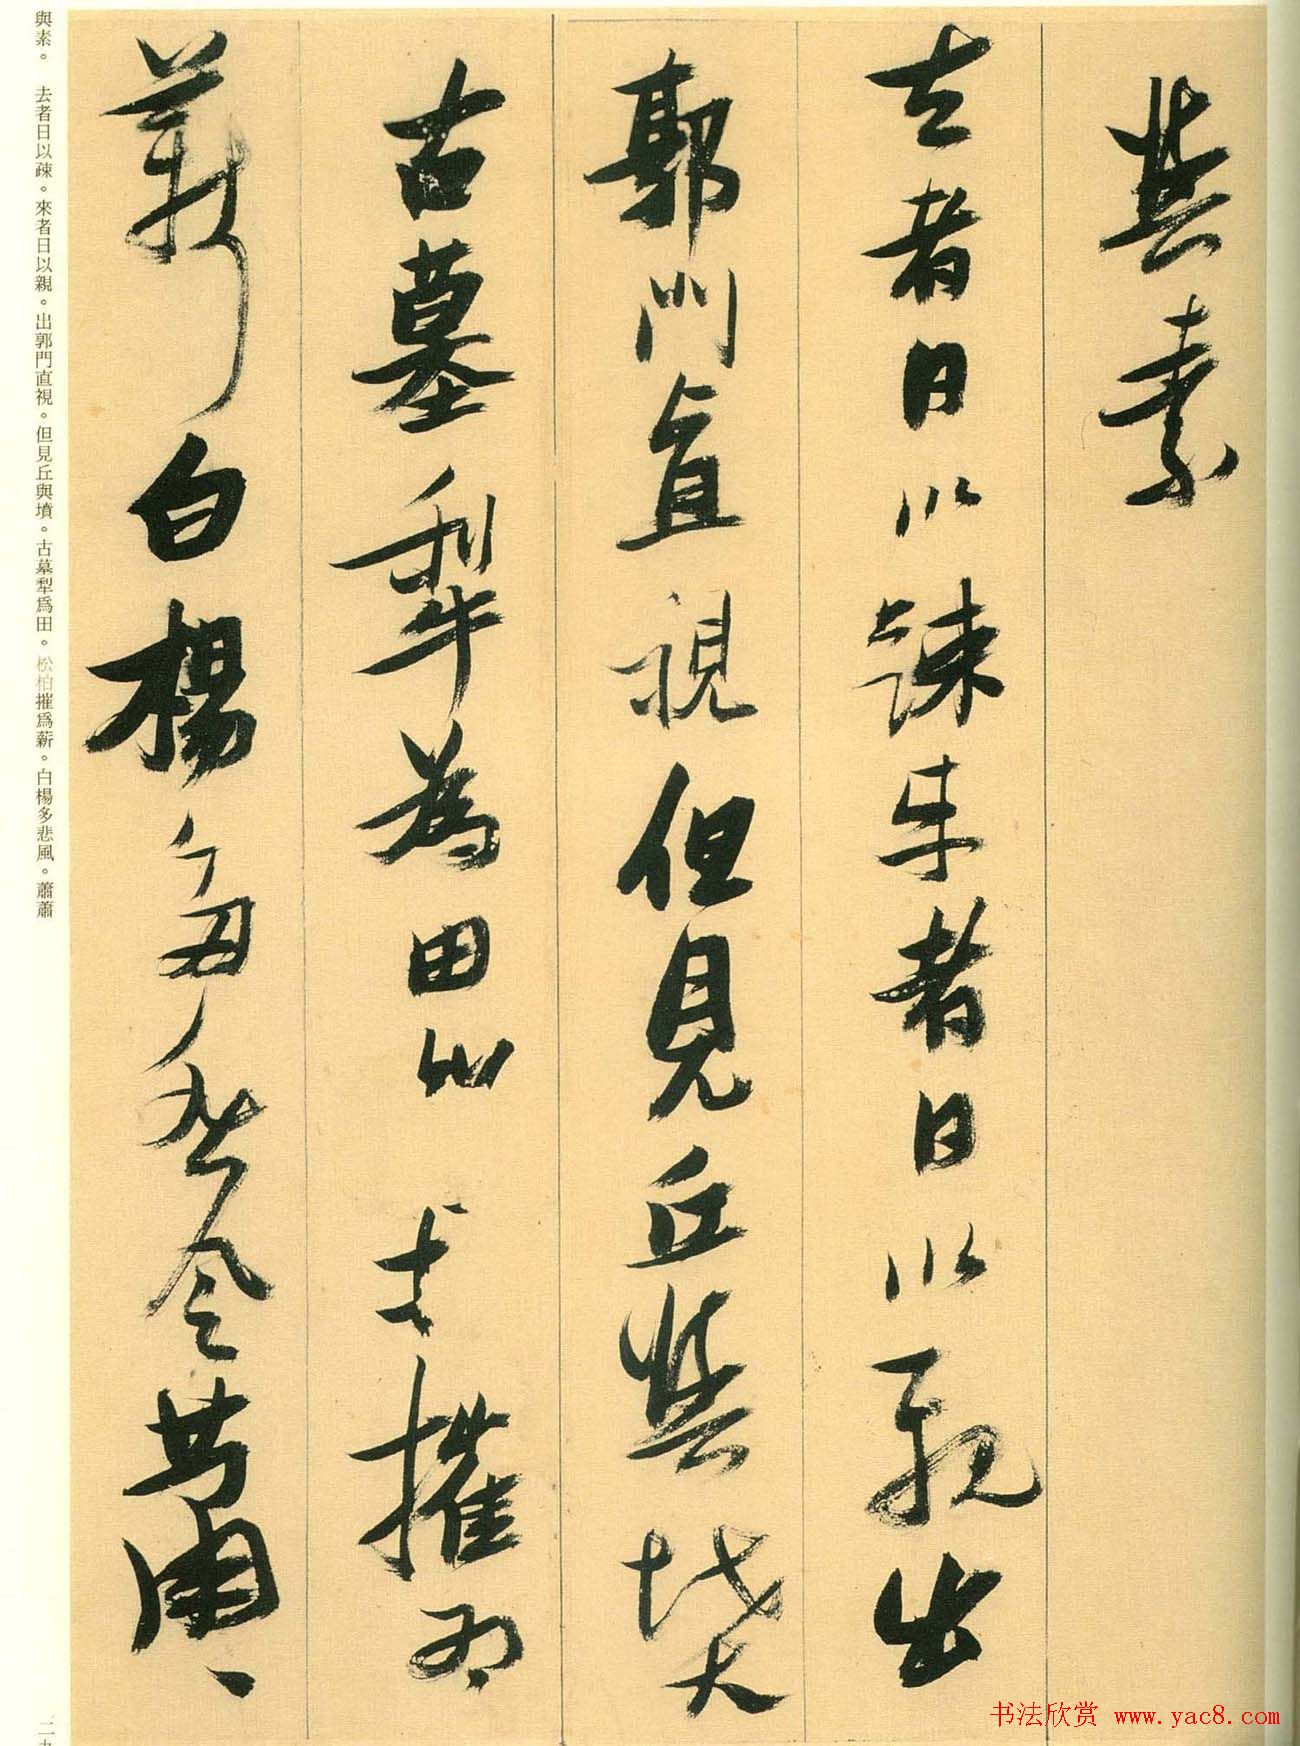 與素
去者日以疎来者日以親出
郭門直視但見丘與墳
古墓犁為田摧為
薪白楊多悲風蕭〻
與素。　去者日以疎。來者日以親。出郭門直視。但見丘與墳。古墓犁爲田。松柏摧爲薪。白楊多悲風。蕭蕭
书法欣赏 www.yac8.com